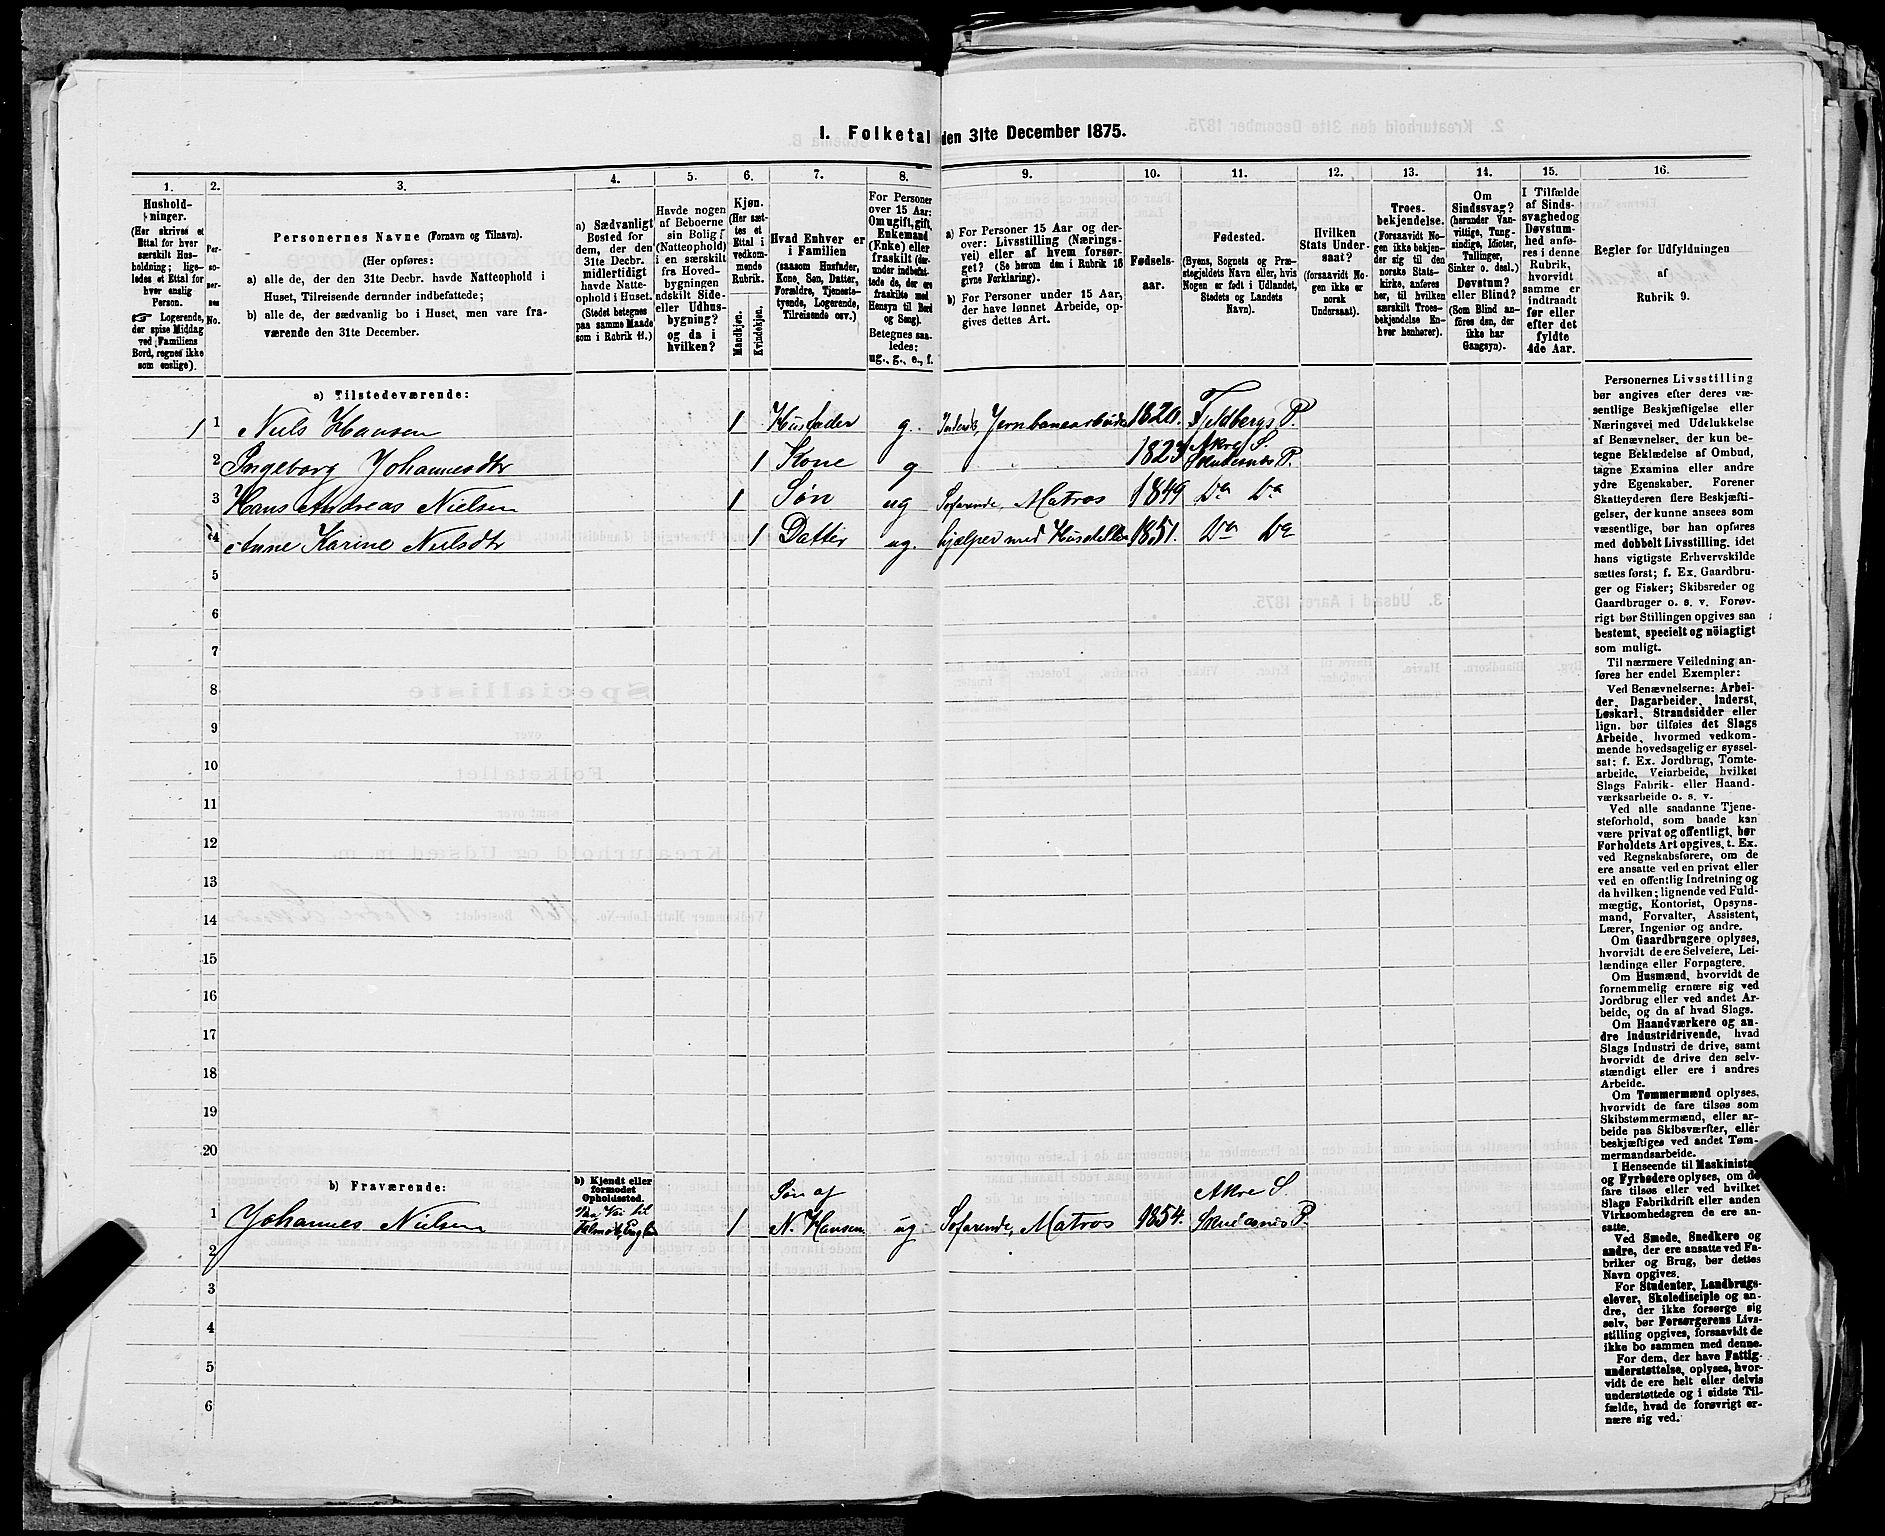 I. Folketal den 31te December 1875.
1. 2. 3. 4. 5. 6. 7. 8. 9. 10. 11. 12. 13. 14. 15. 16.
Hushold-
ninger.
(Her skrives et
Ettal for hver
særskilt Hus-
holdning; lige-
ledes et Ettal for
hver enslig
Person.
☞ Logerende,
der spise Middag
ved Familiens
Bord, regnes ikke
som enslige).
Per-
so-
ner-
nes
No.
Personernes Navne (Fornavn og Tilnavn).
(Her opføres:
a) alle de, der den 31te Decbr. havde Natteophold i
Huset, Tilreisende derunder indbefattede;
b) alle de, der sædvanlig bo i Huset, men vare fra-
værende den 31te December.
a) Sædvanligt
Bosted for
dem, der den
31te Decbr.
midlertidigt
havde Natte-
ophold i Huset.
(Stedet betegnes
paa samme Maade
som i Rubrik 11.)
Havde nogen
af Beboerne
sin Bolig
(Natteophold)
i en særskilt
fra Hoved-
bygningen
adskilt Side-
eller Udhus-
bygning?
og da i
hvilken?
Kjøn.
(Her sæt-
tes et
Ettal i
vedkom-
mende
Rubrik.
Mandkjøn.
Kvindekjøn.
Hvad Enhver er
i Familien
(saasom Husfader,
Kone, Søn, Datter,
Forældre, Tjeneste-
tyende, Logerende,
Tilreisende osv.)
For Personer
over 15 Aar:
Om ugift, gift,
Enkemand
(Enke) eller
fraskilt (der-
under indbefat-
tede de, der ere
fraskilte med
Hensyn til Bord
og Seng).
Betegnes saa-
ledes:
ug., g., e., f.
a) For Personer 15 Aar og der-
over: Livsstilling (Nærings-
vei) eller af hvem forsør-
get? (Se herom den i Rubrik 16
givne Forklaring).
b) For Personer under 15 Aar,
der have lønnet Arbeide, op-
gives dettes Art.
Fødsels-
aar.
Fødested.
(Byens, Sognets og Præ-
stegjeldets Navn eller, hvis
Nogen er født i Udlandet,
Stedets og Landets
Navn).
Hvilken
Stats Under-
saat?
(forsaavidt No-
gen ikke er
norsk
Undersaat).
Troes-
bekjendelse.
(Forsaavidt No-
gen ikke bekjen-
der sig til den
norske Stats-
kirke, anføres
her, til hvilken
særskilt Troes-
bekjendelse En-
hver henhører).
Om
Sindssvag?
(herunder Van-
vittige, Tung-
sindige, Idioter,
Tullinger,
Sinker o. desl.)
Døvstum?
eller Blind?
(Som Blind an-
føres den, der
ikke har
Gangsyn).
I Tilfælde
af Sinds-
svaghed og
Døvstum-
hed anfø-
res i denne
Rubrik,
hvorvidt
samme er
indtraadt
før eller
efter det
fyldte
4de Aar.
Regler for Udfyldningen
af
Rubrik 9.
a) Tilstedeværende:
1 1 Niels Hansen 1 Husfader g. Inderst, Jernbanearbeider 1820. Fjeldbergs P.
2 Ingeborg Johannesdtr 1 Kone g 1823 Akre S. Skudesnes P.
3 Hans Andreas Nielsen 1 Søn ug Søfarende, Matros 1849 Do Do
4 Anne Karine Nielsdtr 1 Datter ug. hjælper med Husstellet 1851. Do Do
5
6
7
8
9
10
11
12
13
14
15
16
17
18
19
20
b) Fraværende:
b) Kjendt eller
formodet
Opholdssted.
1 Johannes Nielsen Paa Vei til Falmouth, England 1 Søn af N. Hansen ug. Søfarende, Matros 1854. Akre S. Skudesnes P.
2
3
4
5
6
Personernes Livsstilling
bør angives efter deres væ-
sentlige Beskjæftigelse eller
Næringsvei med Udelukkelse
af Benævnelser, der kun be-
tegne Beklædelse af Ombud,
tagne Examina eller andre
ydre Egenskaber. Forener
Skatteyderen flere Beskjæfti-
gelser, der kunne ansees som
væsentlige, bør han opføres
med dobbelt Livsstilling, idet
hans vigtigste Erhvervskilde
sættes først; f. Ex. Gaardbru-
ger og Fisker; Skibsreder og
Gaardbruger o. s. v. Forøv-
rigt bør Stillingen opgives saa
bestemt, specielt og nöiagtigt
som muligt.
Til nærmere Veiledning an-
føres her endel Exempler:
Ved Benævnelserne: Arbei-
der, Dagarbeider, Inderst,
Løskarl, Strandsidder eller
lign. bør tilføies det Slags
Arbeide, hvormed vedkom-
mende hovedsagelig er syssel-
sat: f. Ex. Jordbrug, Tomte-
arbeide, Veiarbeide, hvilket
Slags Fabrik- eller Haand-
værksarbeide o. s. v.
Ved alle saadanne Tjene-
steforhold, som baade kan
være privat og offentligt, bør
Forholdets Art opgives, t. Ex.
ved Regnskabsførere, om de
ere ansatte ved en privat eller
ved en offentlig Indretning og
da hvilken; lignende ved Fuld-
mægtig, Kontorist, Opsyns-
mand, Forvalter, Assistent,
Lærer, Ingeniør og andre.
Om Gaardbrugere oplyses,
hvorvidt de ere Selveiere, Lei-
lændinge eller Forpagtere.
Om Husmænd, hvorvidt de
fornemmelig ernære sig ved
Jordbrug eller ved andet Ar-
beide, og da af hvad Slags.
Om Haandværkere og an-
dre Industridrivende, hvad
Slags Industri de drive, samt
hvorvidt de drive den selv-
stændigt eller ere i andres
Arbeide.
Om Tømmermænd oplyses,
hvorvidt de fare tilsøs som
Skibstømmermænd, eller ar-
beide paa Skibsværfter, eller
beskjæftiges ved andet Tøm-
mermandsarbeide.
I Henseende til Maskinister
og Fyrbødere oplyses, om de
fare tilsøs eller ved hvilket
Slags Fabrikdrift eller anden
Virksomhedsgren de ere an-
satte.
Ved Smede, Snedkere og
andre, der ere ansatte ved Fa-
briker og Brug, bør dettes
Navn opgives.
For Studenter, Landbrugs-
elever, Skoledisciple og an-
dre, der ikke forsørge sig
selv, bør Forsørgerens Livs-
stilling opgives, forsaavidt de
ikke bo sammen med denne.
For dem, der have Fattig-
understøttelse, oplyses, hvor-
vidt de ere helt eller delvis
understøttede og i sidste Til-
fælde, hvad de forøvrigt er-
nære sig ved.